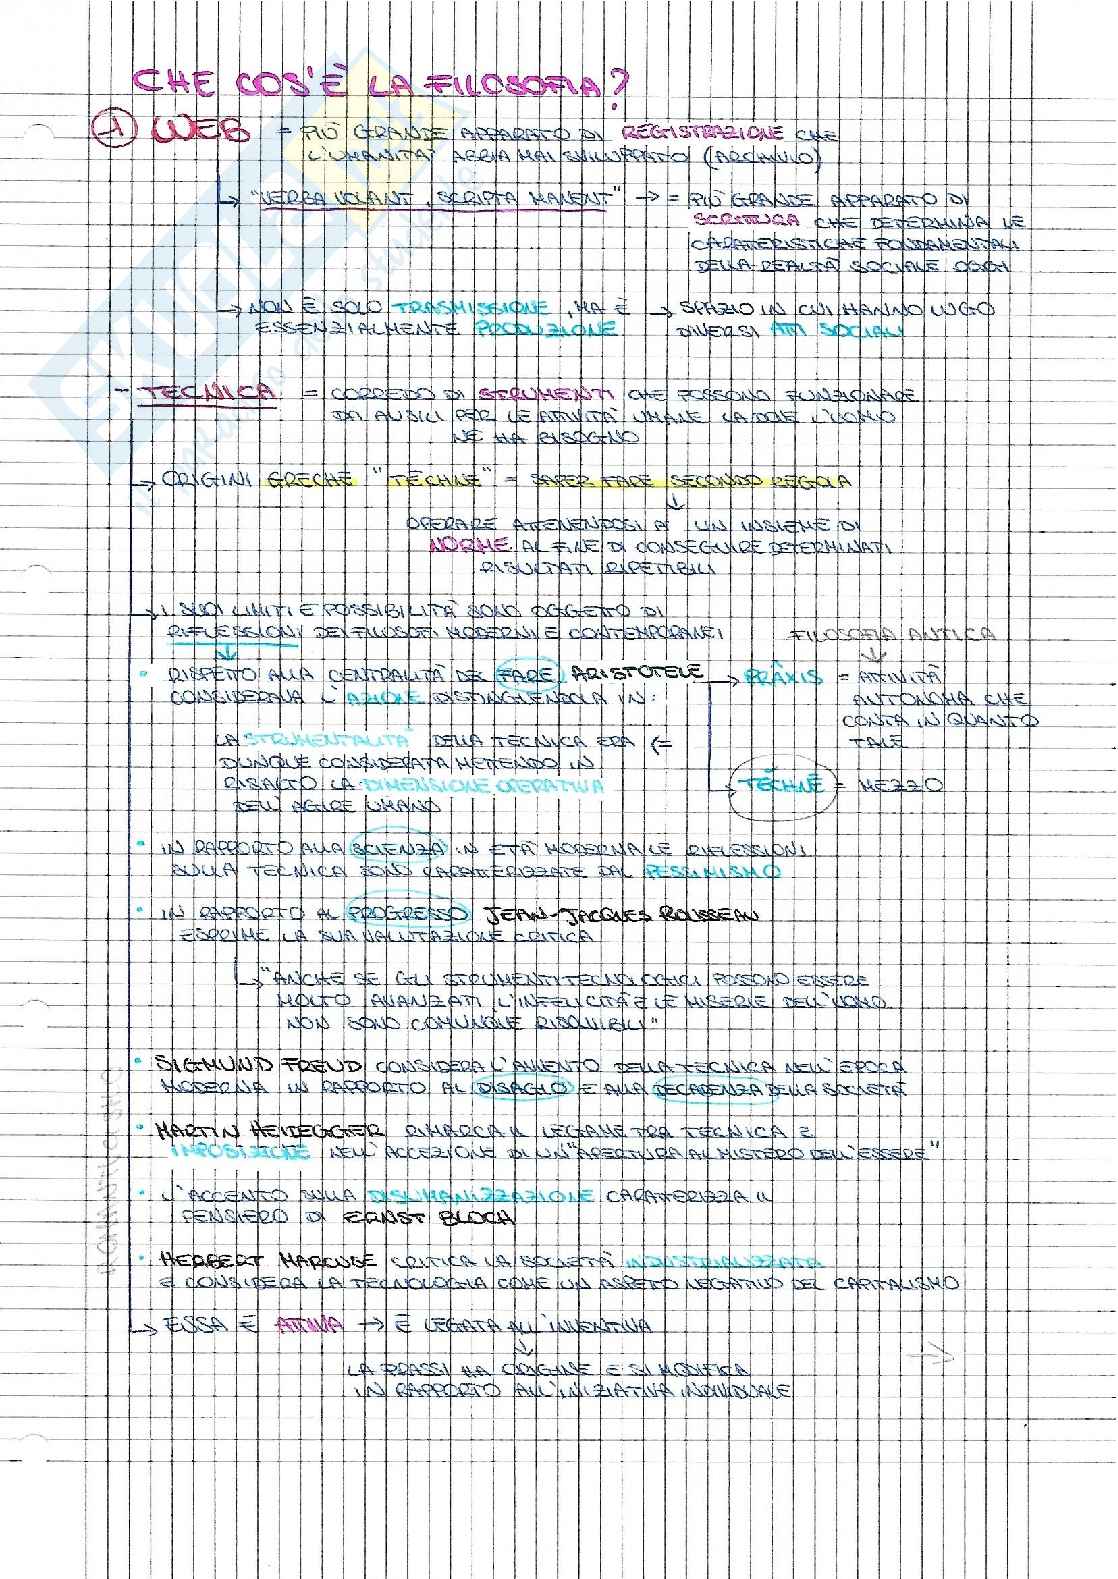 CHE COS'È LA FILOSOFIA?
1 WEB = PIÙ GRANDE APPARATO DI REGISTRAZIONE CHE
L'UMANITA' ABBIA MAI SVILUPPATO (ARCHIVIO)
↳ "VERBA VOLANT, SCRIPTA MANENT" → = PIÙ GRANDE APPARATO DI
SCRITTURA CHE DETERMINA LE
CARATTERISTICHE FONDAMENTALI
DELLA REALTÀ SOCIALE OGGI
↳ NON È SOLO TRASMISSIONE, MA È → SPAZIO IN CUI HANNO LUOGO
ESSENZIALMENTE PRODUZIONE DIVERSI ATTI SOCIALI
- TECNICA = CORREDO DI STRUMENTI CHE POSSONO FUNZIONARE
DA AUSILI PER LE ATTIVITA' UMANE LA DOVE L'UOMO
NE HA BISOGNO
→ ORIGINI GRECHE "TÉCHNE" = SAPER FARE SECONDO REGOLA
↓
OPERARE ATTENENDOSI A UN INSIEME DI
NORME AL FINE DI CONSEGUIRE DETERMINATI
RISULTATI RIPETIBILI
→ I SUOI LIMITI E POSSIBILITA' SONO OGGETTO DI
RIFLESSIONI DEI FILOSOFI MODERNI E CONTEMPORANEI
FILOSOFIA ANTICA
• RISPETTO ALLA CENTRALITA' DEL FARE ARISTOTELE → PRÂXIS = ATTIVITÀ
CONSIDERAVA L'AZIONE DISTINGUENDOLA IN: AUTONOMA CHE
CONTA IN QUANTO
TALE
LA STRUMENTALITA' DELLA TECNICA ERA (=
DUNQUE CONSIDERATA METTENDO IN
RISALTO LA DIMENSIONE OPERATIVA → TÉCHNĒ = MEZZO
DELL'AGIRE UMANO
• IN RAPPORTO ALLA SCIENZA IN ETÀ MODERNA LE RIFLESSIONI
SULLA TECNICA SONO CARATTERIZZATE DAL PESSIMISMO
• IN RAPPORTO AL PROGRESSO JEAN-JACQUES ROUSSEAU
ESPRIME LA SUA VALUTAZIONE CRITICA
↳ "ANCHE SE GLI STRUMENTI TECNOLOGICI POSSONO ESSERE
MOLTO AVANZATI L'INFELICITÀ E LE MISERIE DELL'UOMO
NON SONO COMUNQUE RISOLVIBILI"
• SIGMUND FREUD CONSIDERA L'AVVENTO DELLA TECNICA NELL'EPOCA
MODERNA IN RAPPORTO AL DISAGIO E ALLA DECADENZA DELLA SOCIETÀ
• MARTIN HEIDEGGER RIMARCA IL LEGAME TRA TECNICA E
IMPOSIZIONE NELL'ACCEZIONE DI UN "APERTURA AL MISTERO DELL'ESSERE"
• L'ACCENTO SULLA DISUMANIZZAZIONE CARATTERIZZA IL
PENSIERO DI ERNST BLOCH
• HERBERT MARCUSE CRITICA LA SOCIETÀ INDUSTRIALIZZATA
E CONSIDERA LA TECNOLOGIA COME UN ASPETTO NEGATIVO DEL CAPITALISMO
→ ESSA È ATTIVA → È LEGATA ALL'INVENTIVA
↓
LA PRASSI HA ORIGINE E SI MODIFICA
IN RAPPORTO ALL'INIZIATIVA INDIVIDUALE